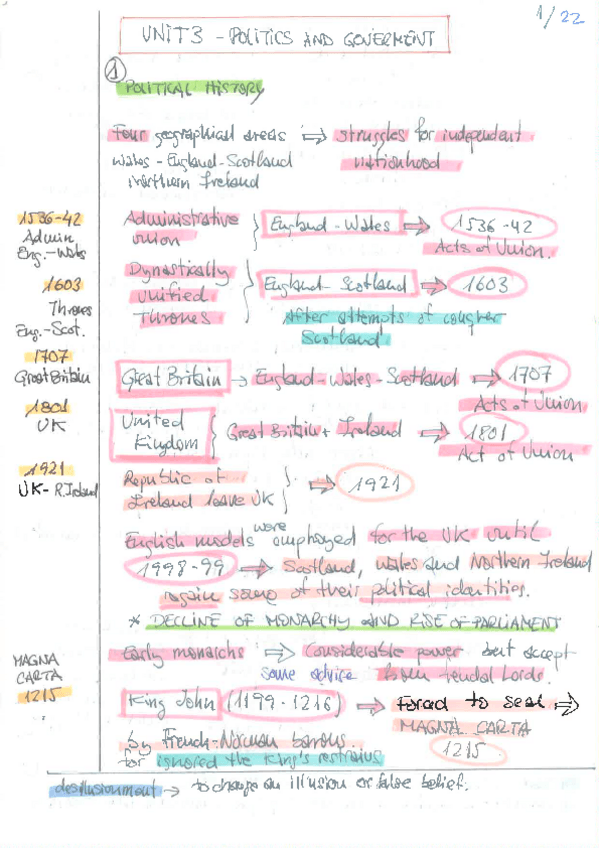 1/22
UNIT 3 - POLITICS AND GOVERMENT
1
POLITICAL HISTORY
Four geographical areas ⇒ struggles for independent
Wales - England - Scotland nationhood
Northern Ireland
1536-42
Admin.
Eng. - Wales
Administrative
union } England - Wales ⇒ 1536-42
Acts of Union.
1603
Thrones
Eng. - Scot.
Dynastically
unified
Thrones } England - Scotland ⇒ 1603
After attempts of conquer
Scotland.
1707
Great Britain
Great Britain → England - Wales - Scotland ⇒ 1707
Acts of Union
1801
UK
United
Kingdom { Great Britain + Ireland ⇒ 1801
Act of Union
1921
UK - R. Ireland
Republic of
Ireland leave UK } ⇒ 1921
English models were employed for the UK until
1998-99 → Scotland, Wales and Northern Ireland
regain some of their political identities.
* DECLINE OF MONARCHY AND RISE OF PARLIAMENT
Early monarchs ⇒ Considerable power but accept
some advice from feudal lords.
MAGNA
CARTA
1215
King John (1199-1216) ⇒ Forced to seal ⇒
MAGNA CARTA
by French-Norman barons 1215
for ignored the King's restrains
desillusionment → to change an illusion or false belief.